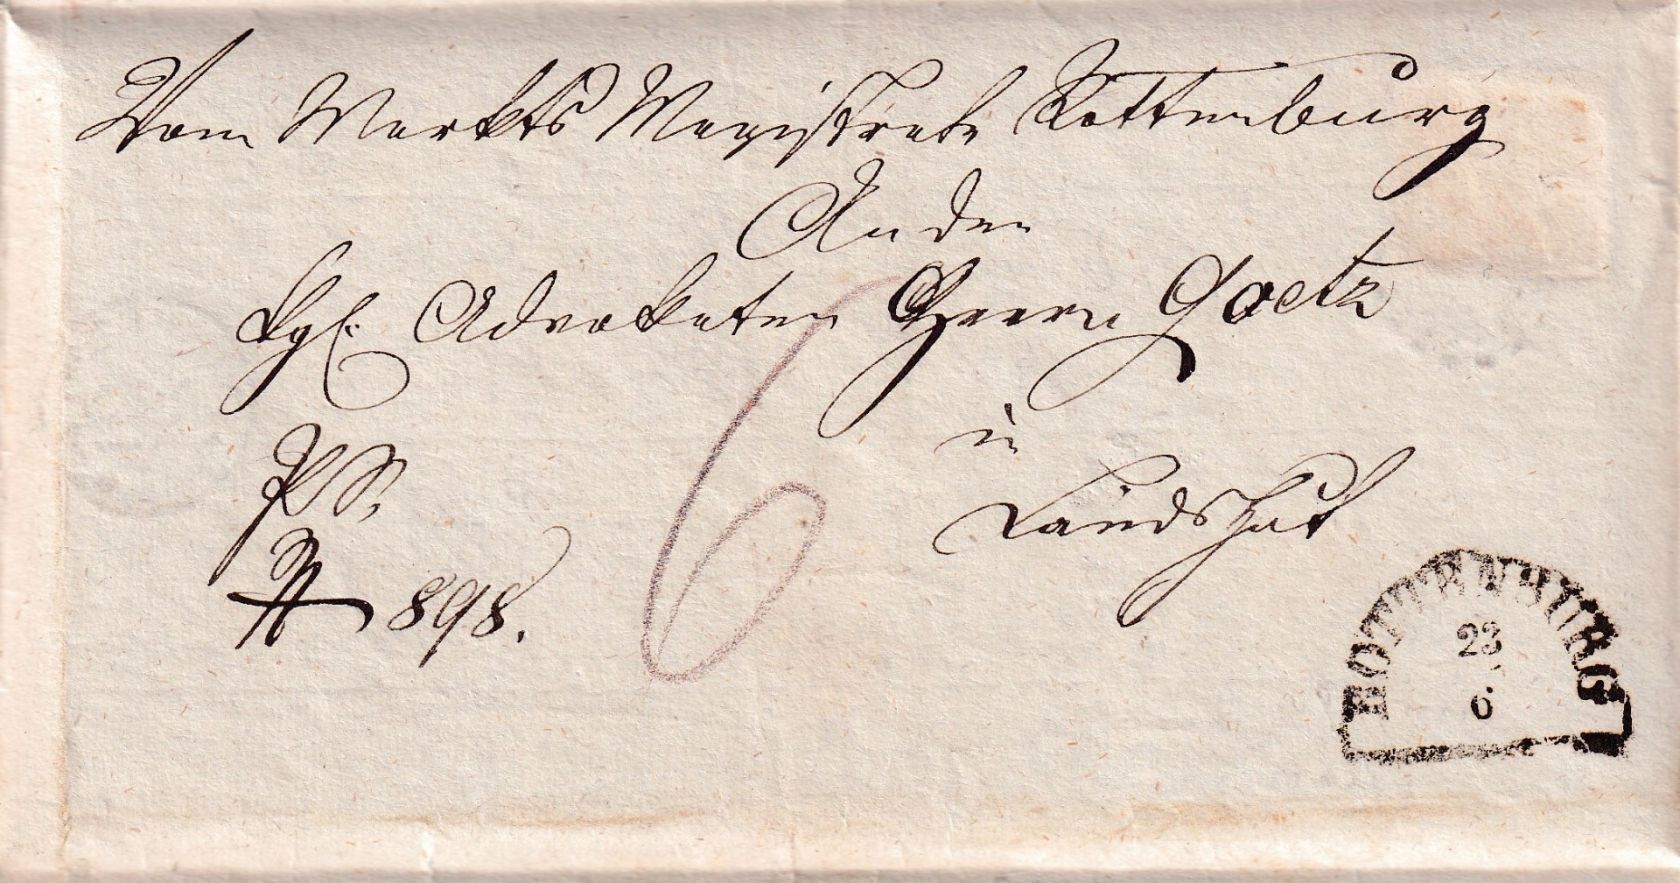 Vom Markts Magistrate Rottenburg
An den
kgl. Advokaten Herrn Goetz
in
Landshut
PS.
N 898.
6
ROTTENBURG
23
6